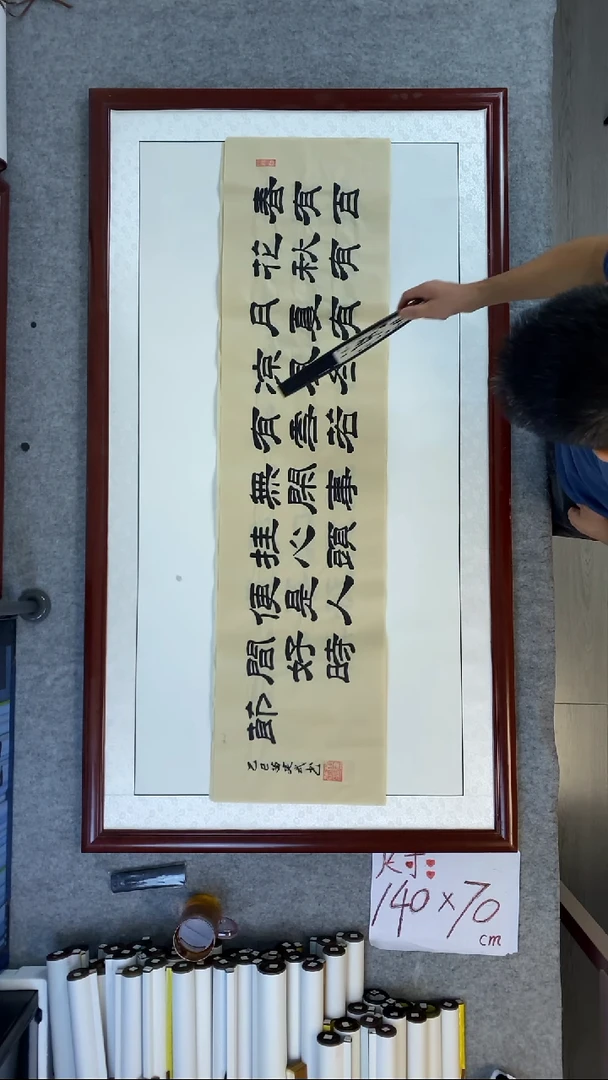 春有百
花秋有
月夏有
涼風冬
有雪若
無閑事
挂心頭
便是人
間好時
節
乙巳
尺寸:
140×70
cm